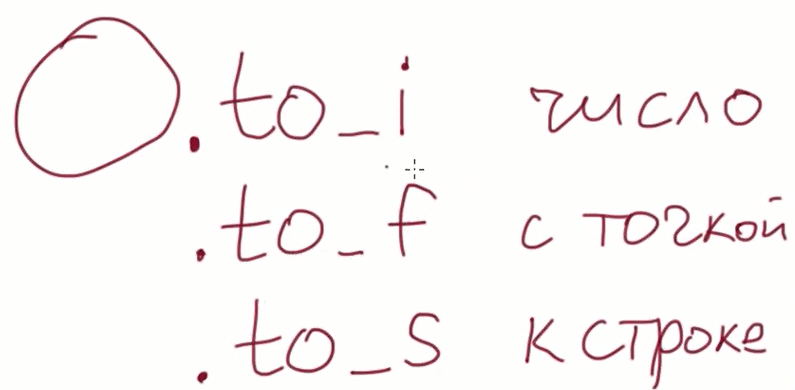 .to_i число
.to_f с точкой
.to_s к строке